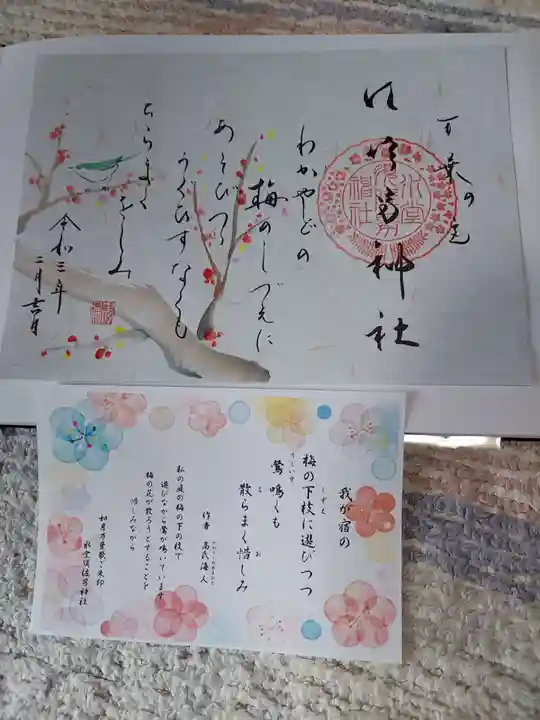 万葉の花
神社
わかやどの
梅のしづえに
あそびつつ
うぐひすなくも
ちらまくをしみ
令和三年
二月
我が宿の
梅の下枝に遊びつつ
しずえ
鶯鳴くも
うぐいす
散らまく惜しみ
ち
お
作者 高氏海人
私の庭の梅の下の枝で
遊びながら鶯が鳴いています
梅の花が散ろうとすることを
惜しみながら
如月万葉歌ご朱印
氷室須佐乃神社